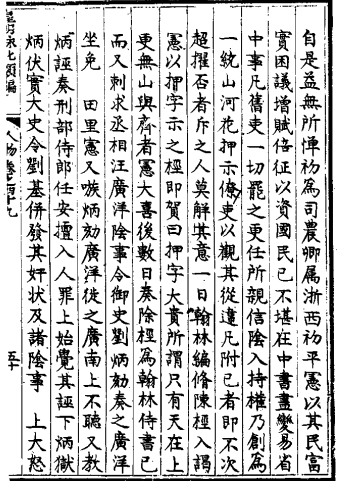 自是益無所憚初為司農卿属浙西初平憲以其民富
實困議增賦倍征以資國民已不堪在中書盡變易省
中事凡舊吏一切罷之更任所親信陰入持權乃創為
一統山河花押示僚吏以觀其從違凡附已者即不次
超擢否者斥之人莫解其意一日翰林編脩陳桱入謁
憲以押字示之桱即賀曰押字大貴所謂只有天在上
更無山與齊者憲大喜後數日奏除桱為翰林侍書已
而又刺求丞相汪廣洋陰事令御史劉炳劾奏之廣洋
坐免 田里憲又嗾炳劾廣洋徙之廣南上不聽又教
炳誣奏刑部侍郎任安擅入人罪上始覺其誣下炳獄
炳伏實大史令劉基併發其奸狀及諸陰事 上大怒
人物卷
五十